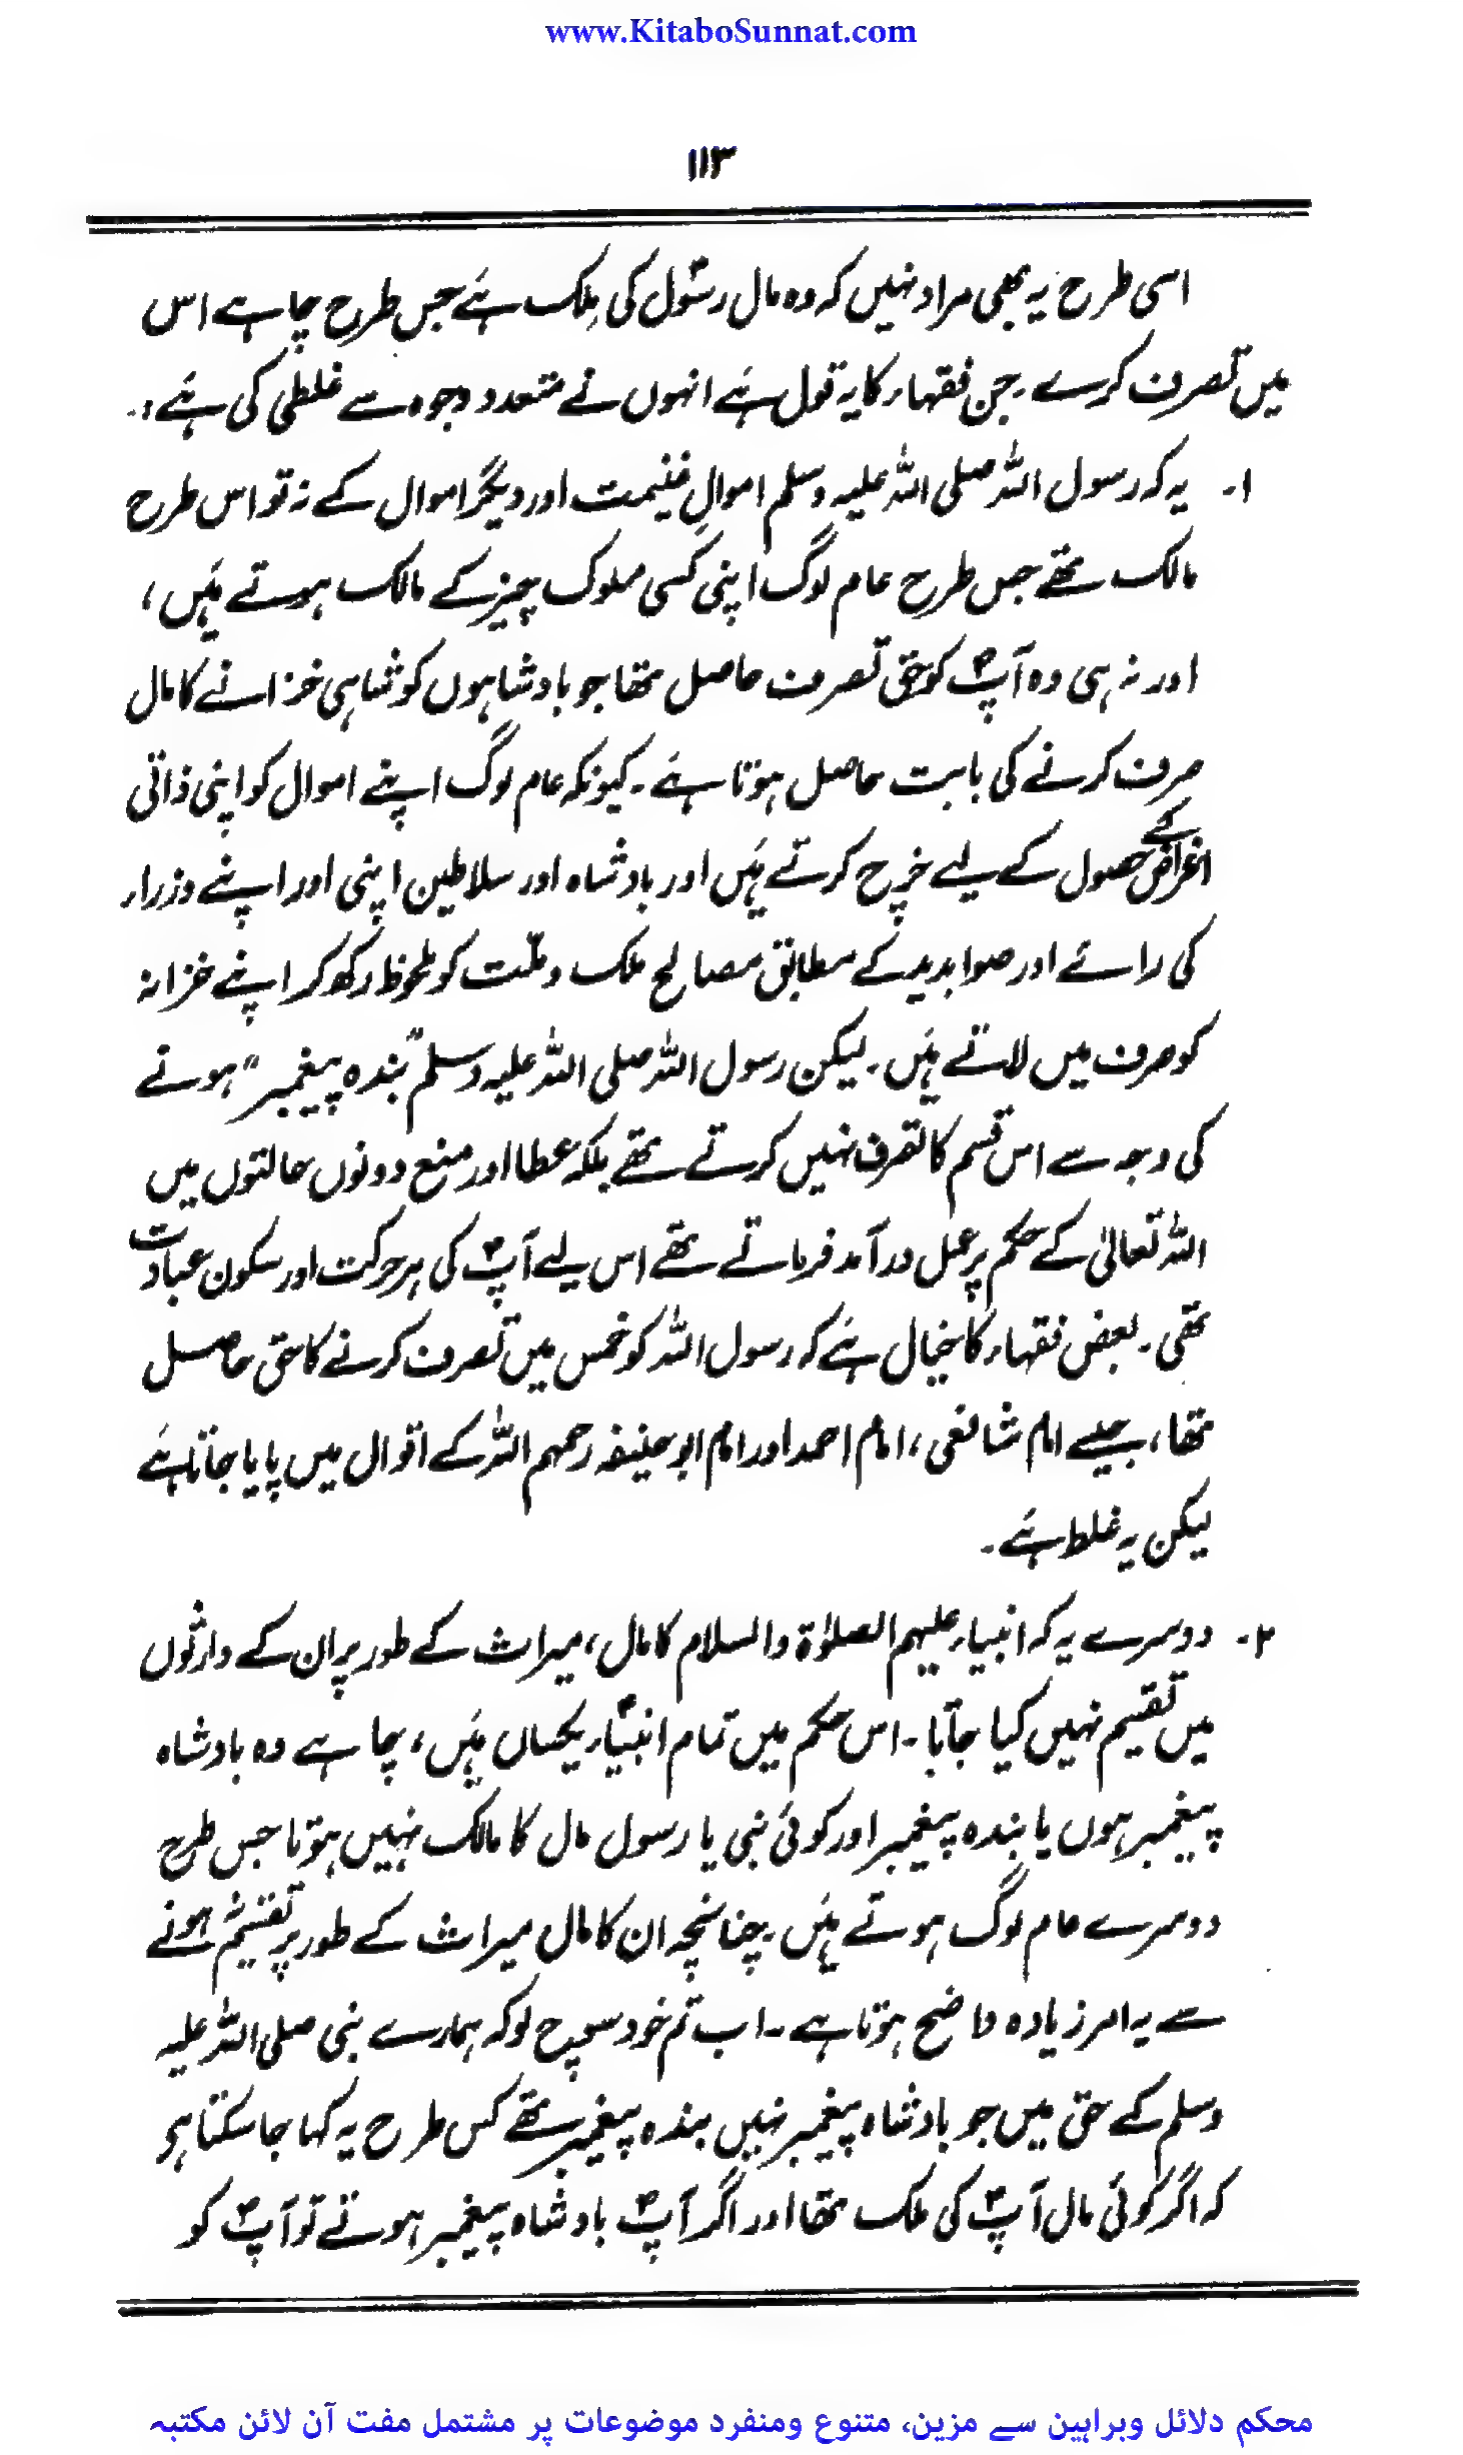 www.KitaboSunnat.com
۱۱۳
اسی طرح یہ بھی مراد نہیں کہ وہ مال رسُول کی مِلک ہَے جس طرح چاہے اس
میں تصرف کرے ۔ جن فقہاء کا یہ قول ہَے انہوں نے متعدد وجوہ سے غلطی کی ہَے :۔
۱۔ یہ کہ رسول اللہ صلی اللہ علیہ وسلم اموالِ غنیمت اور دیگر اموال کے نہ تو اس طرح
مالک تھے جس طرح عام لوگ اپنی کسی مملوک چیز کے مالک ہوتے ہَیں ،
اور نہ ہی وہ آپؐ کو حق تصرف حاصل تھا جو بادشاہوں کو شاہی خزانے کا مال
صرف کرنے کی بابت حاصل ہوتا ہَے ۔ کیونکہ عام لوگ اپنے اموال کو اپنی ذاتی
اغراض کے حصول کے لیے خرچ کرتے ہَیں اور بادشاہ اور سلاطین اپنی اور اپنے وزراء
کی رائے اور صوابدید کے مطابق مصالح ملک و ملّت کو ملحوظ رکھ کر اپنے خزانہ
کو صرف میں لاتے ہَیں ۔ لیکن رسول اللہ صلی اللہ علیہ وسلم "بندہ پیغمبر" ہونے
کی وجہ سے اس قسم کا تصرف نہیں کرتے تھے بلکہ عطا اور منع دونوں حالتوں میں
اللہ تعالیٰ کے حکم پر عمل درآمد فرماتے تھے اس لیے آپؐ کی ہر حرکت اور سکون عبادت
تھی ۔ بعض فقہاء کا خیال ہَے کہ رسول اللہ کو خمس میں تصرف کرنے کا حق حاصل
تھا ، جیسے امام شافعی ، امام احمد اور امام ابو حنیفہ رحمہم اللہ کے اقوال میں پایا جاتا ہَے
لیکن یہ غلط ہَے ۔
۲۔ دوسرے یہ کہ انبیاء علیہم الصلوٰۃ والسلام کا مال ، میراث کے طور پر ان کے وارثوں
میں تقسیم نہیں کیا جاتا ۔ اس حکم میں تمام انبیاءؑ یکساں ہَیں ، چاہے وہ بادشاہ
پیغمبر ہوں یا بندہ پیغمبر اور کوئی نبی یا رسول مال کا مالک نہیں ہوتا جس طرح
دوسرے عام لوگ ہوتے ہَیں ۔ چنانچہ ان کا مال میراث کے طور پر تقسیم نہ ہونے
سے یہ امر زیادہ واضح ہوتا ہے ۔ اب تم خود سوچ لو کہ ہمارے نبی صلی اللہ علیہ
وسلم کے حق میں جو بادشاہ پیغمبر نہیں بندہ پیغمبر تھے کس طرح یہ کہا جاسکتا ہی
کہ اگر کوئی مال آپؐ کی ملک تھا اور اگر آپؐ بادشاہ پیغمبر ہوتے تو آپؐ کو
محکم دلائل وبراہین سے مزین، متنوع ومنفرد موضوعات پر مشتمل مفت آن لائن مکتبہ